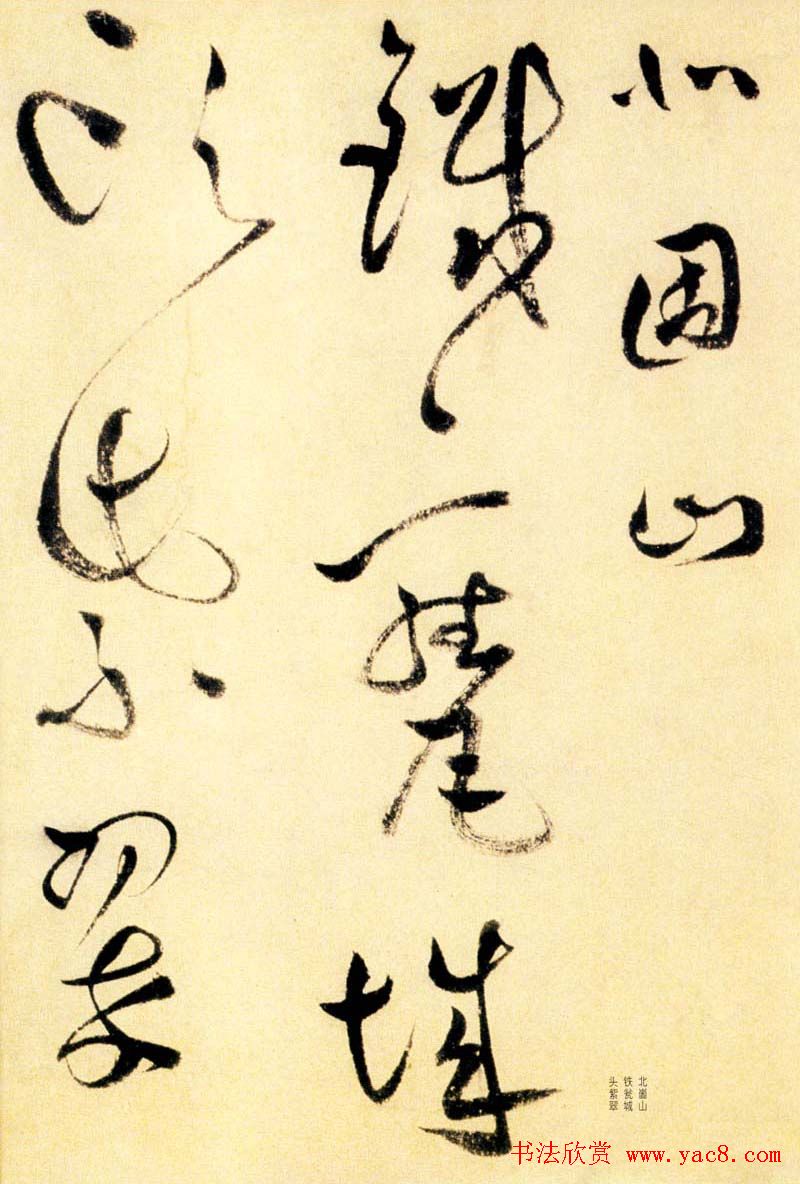 北固山
鐵甕城
頭紫翠
北崮山
铁瓮城
头紫翠
书法欣赏 www.yac8.com